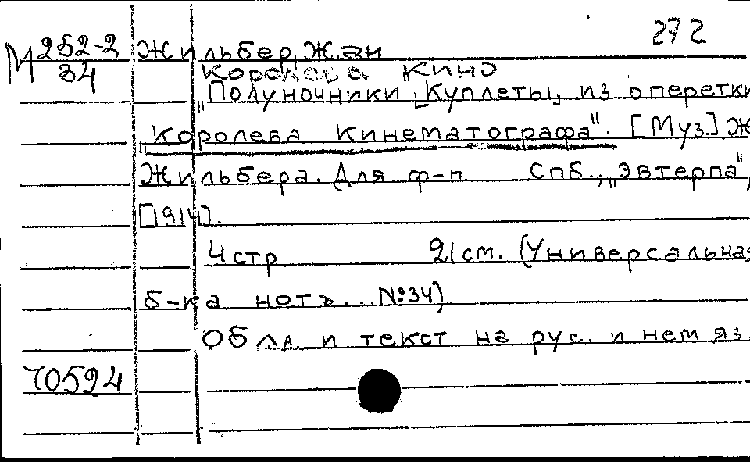 272
М 252-2 Жильбер, Жан
34 Королева кино
"Полуночники", Куплеты, из оперетки
"Королева Кинематографа". [Муз.] Ж
Жильбера. Для ф-п СПб., "Эвтерпа",
[1914].
4 стр 21 см. (Универсальная
б-ка нотъ. №34)
Обл. и текст на рус. и нем яз.
70594